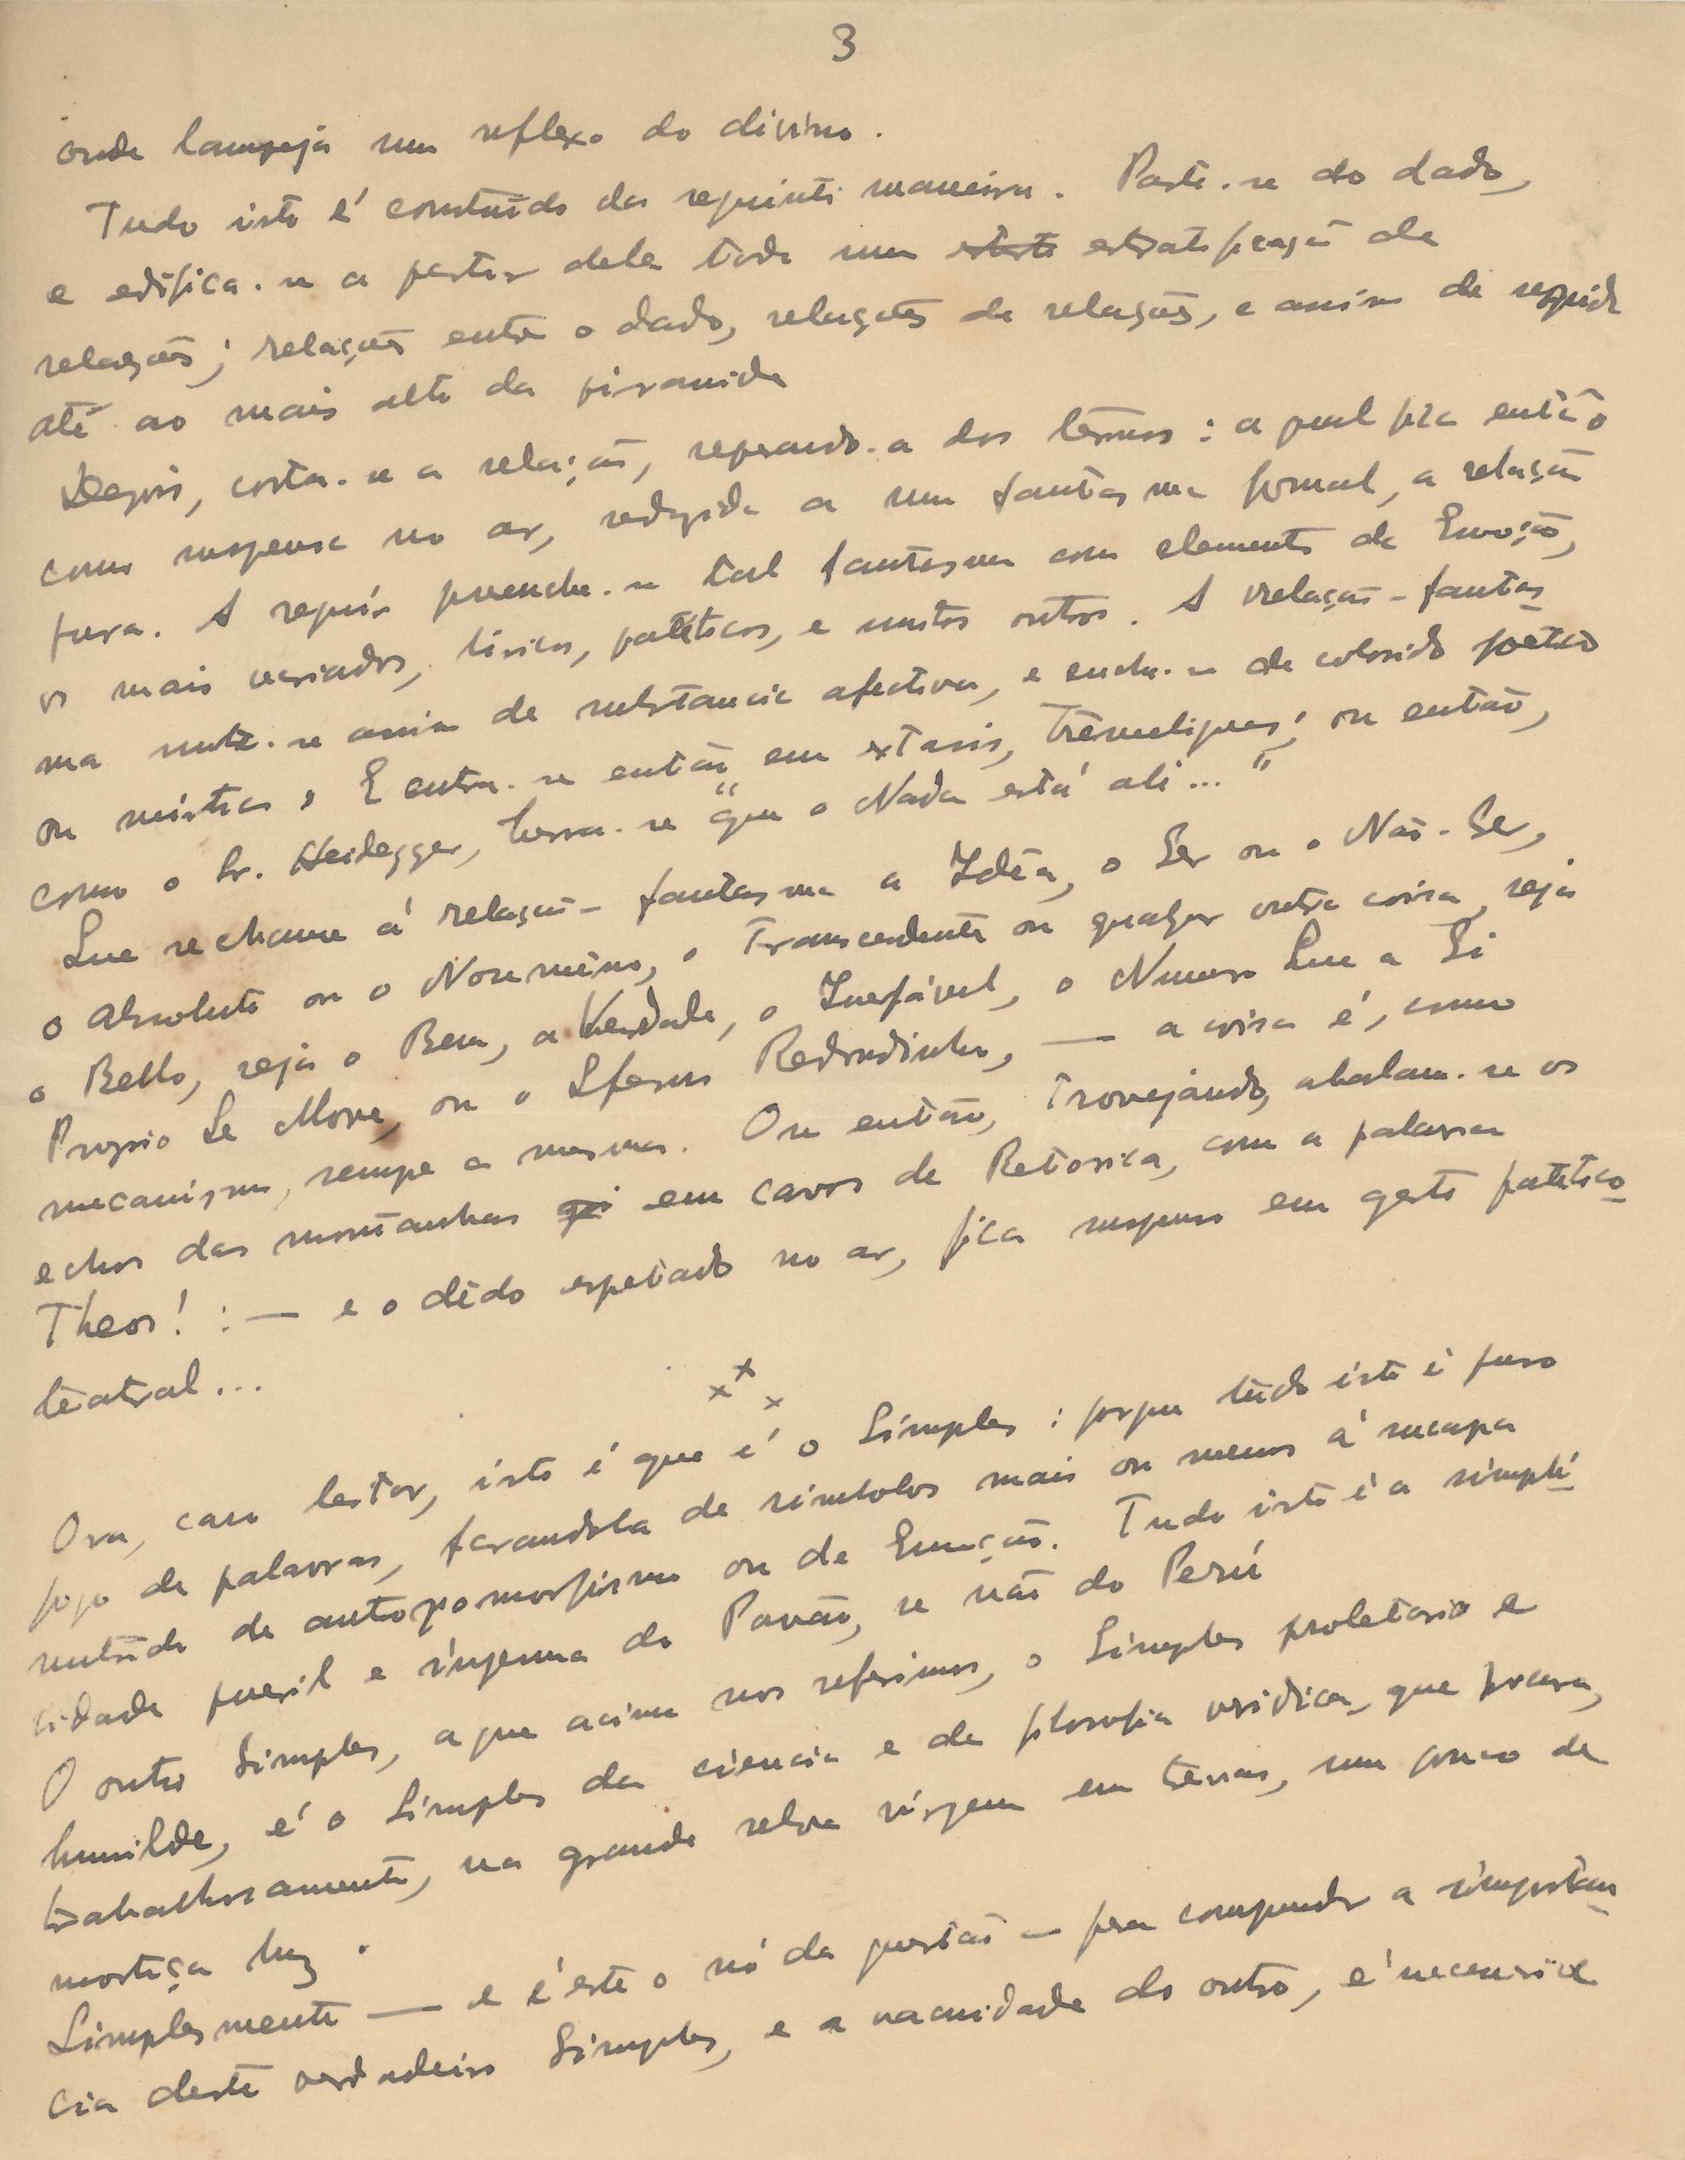 3
onde lampeja um reflexo do divino.
Tudo isto é construido da seguinte maneira. Parte-se do dado,
e edifica-se a partir dele toda uma estratificação de
relações; relações entre o dado, relações de relações, e assim de seguida
até ao mais alto da piramide
Depois, corta-se a relação, separando-a dos têrmos: a qual fica então
como suspensa no ar, reduzida a um fantasma formal, a relação
pura. A seguir preenche-se tal fantasma com elementos de Emoção,
os mais variados, liricos, patéticos, e muitos outros. A relação-fantas-
ma nutre-se assim de substancia afectiva, e enche-se de colorido poético
ou místico. E entra-se então em extasis, trémeliques; ou então,
como o Sr. Heidegger, berra-se "que o Nada está ali..."
Que se chame á relação-fantasma a Idéa, o Ser ou o Não-Ser,
o Absoluto ou o Noumêno, o Transcendente ou qualquer outra coisa, seja
o Bello, seja o Bem, a Verdade, o Inefável, o Numero Que a Si
Proprio Se Move, ou o Sferus Redondinho, — a coisa é, como
mecanismo, sempre a mesma. Ou então, trovejando, abalam-se os
echos das montanhas em cavos de Retorica, com a palavra
Theos! : — e o dêdo espetado no ar, fica suspenso em gesto patético-
teatral...
x x x
Ora, caro leitor, isto é que é o Simples: porque tudo isto é puro
jogo de palavras, farandola de símbolos mais ou menos á socapa
nutrida de antropomorfismo ou de Emoção. Tudo isto é a simpli-
cidade pueril e ingenua do Pavão, se não do Perú
O outro Simples, a que acima nos referimos, o Simples proletario e
humilde, é o Simples da ciencia e da filosofia veridica, que procura,
trabalhosamente, na grande selva virgem em trevas, um pouco de
mortiça luz.
Simplesmente — e é este o nó da questão — para compreender a importan-
cia deste verdadeiro Simples, e a vacuidade do outro, é necessária